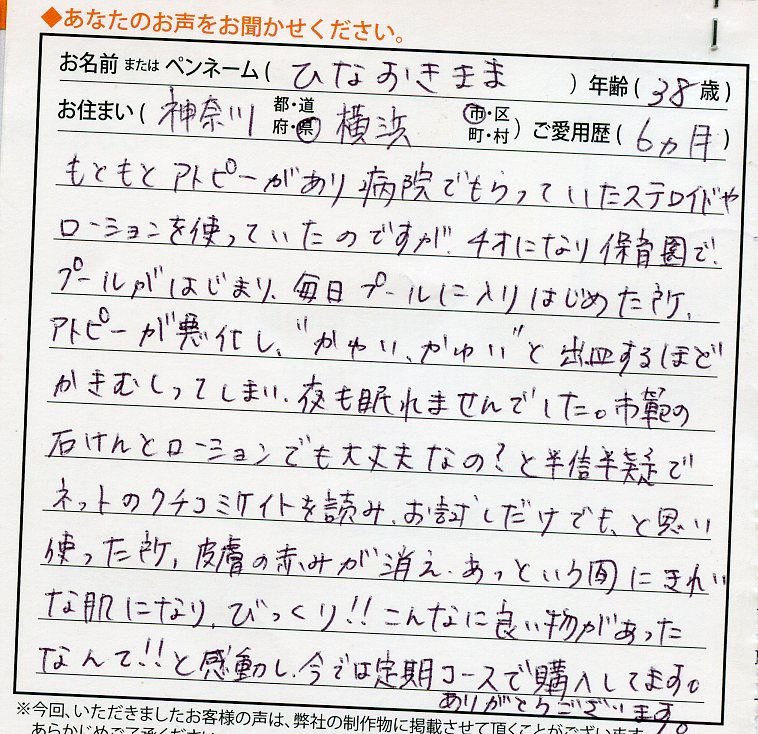 ◆あなたのお声をお聞かせください。
お名前 または ペンネーム ( ひなおきまま ) 年齢 ( 38 歳 )
お住まい ( 神奈川 都・道 府・県 横浜 市・区 町・村 ) ご愛用歴 ( 6ヵ月 )
もともとアトピーがあり病院でもらっていたステロイドや
ローションを使っていたのですが、4才になり保育園で、
プールがはじまり、毎日プールに入りはじめた所、
アトピーが悪化し、"かゆい、かゆい"と出血するほど
かきむしってしまい、夜も眠れませんでした。市範の
石けんとローションでも大丈夫なの?と半信半疑で
ネットのクチコミサイトを読み、お試しだけでも、と思い
使った所、皮膚の赤みが消え、あっという間にきれい
な肌になり、びっくり!!こんなに良い物があった
なんて!!と感動し、今では定期コースで購入してます。
ありがとうございます。
※今回、いただきましたお客様の声は、弊社の制作物に掲載させて頂くことがございます
あらかじめご了承ください